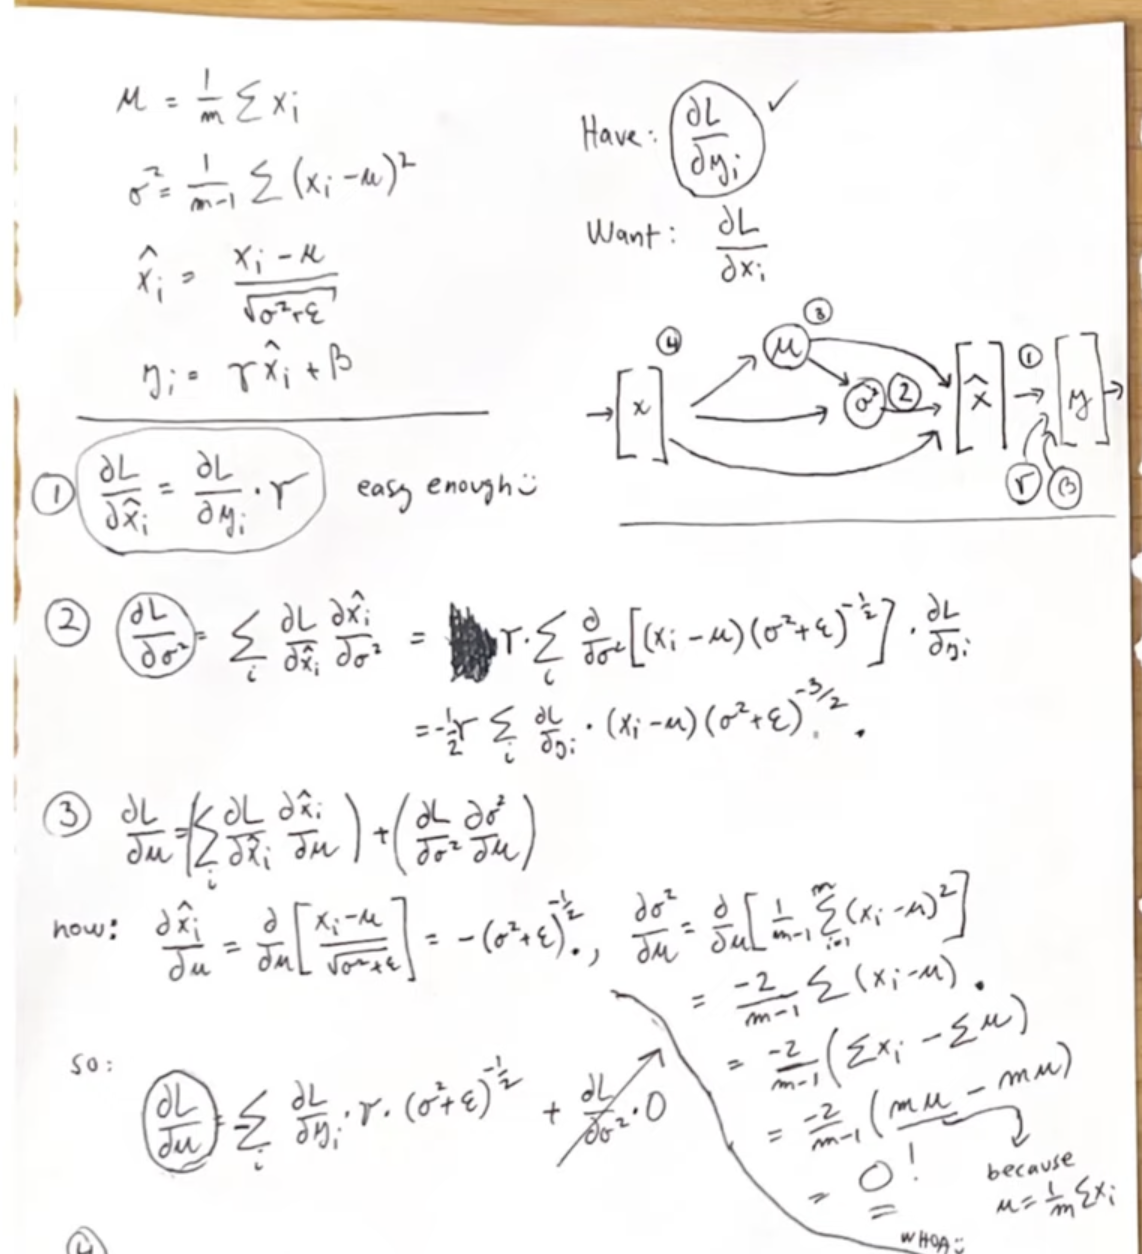 μ = 1/m Σ xᵢ
σ² = 1/(m-1) Σ (xᵢ - μ)²
x̂ᵢ = (xᵢ - μ)/√(σ²+ε)
yᵢ = γx̂ᵢ + β
Have: ∂L/∂yᵢ ✓
Want: ∂L/∂xᵢ
④ μ ③
→ [x] σ² ② [x̂] ① → [y] →
γ β
① ∂L/∂x̂ᵢ = ∂L/∂yᵢ · γ easy enough ü
② ∂L/∂σ² = Σᵢ ∂L/∂x̂ᵢ ∂x̂ᵢ/∂σ² = γ · Σᵢ ∂/∂σ² [(xᵢ - μ)(σ²+ε)^(-1/2)] · ∂L/∂yᵢ
= -1/2 γ Σᵢ ∂L/∂yᵢ · (xᵢ - μ)(σ²+ε)^(-3/2).
③ ∂L/∂μ = (Σᵢ ∂L/∂x̂ᵢ ∂x̂ᵢ/∂μ) + (∂L/∂σ² ∂σ²/∂μ)
now: ∂x̂ᵢ/∂μ = ∂/∂μ [(xᵢ - μ)/√(σ²+ε)] = -(σ²+ε)^(-1/2)., ∂σ²/∂μ = ∂/∂μ [1/(m-1) Σᵢ₌₁ᵐ (xᵢ - μ)²]
= -2/(m-1) Σ (xᵢ - μ).
= -2/(m-1) (Σxᵢ - Σμ)
= -2/(m-1) (mμ - mμ)
= 0!
because
μ = 1/m Σxᵢ
WHOA ü
so:
∂L/∂μ = -Σᵢ ∂L/∂yᵢ · γ · (σ²+ε)^(-1/2) + ∂L/∂σ² · 0
④